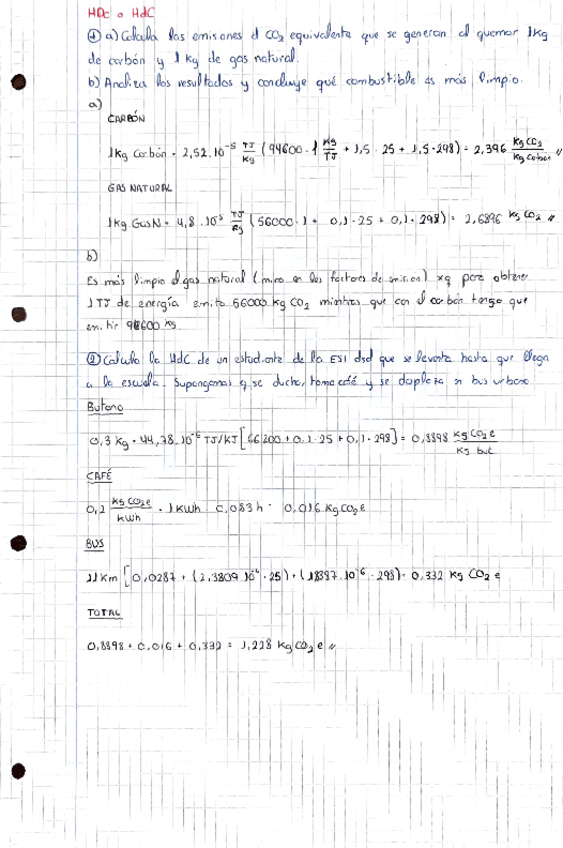 HDC o HdC
① a) Calcula las emisiones d CO₂ equivalente que se generan al quemar 1kg
de carbón y 1 kg de gas natural.
b) Analiza los resultados y concluye qué combustible es más limpio.
a)
CARBÓN
1Kg Carbón = 2,52·10⁻⁵ TJ/Kg (94600·1 Kg/TJ + 1,5·25 + 1,5·298) = 2,396 Kg CO₂/Kg Carbón //
GAS NATURAL
1Kg GasN = 4,8·10⁻⁵ TJ/Kg (56000·1 + 0,1·25 + 0,1·298) = 2,6896 Kg CO₂ //
b)
Es más limpio el gas natural (miro en los factores de emisión) xq para obtener
1TJ de energía emito 56000 kg CO₂ mientras que con el carbón tengo que
emitir 98600 kg
② Calcula la HdC de un estudiante de la ESI dsd que se levanta hasta que llega
a la escuela. Supongamos q se ducha, toma café y se desplaza en bus urbano
Butano
0,3 Kg · 44,78·10⁻⁶ TJ/KJ [66200 + 0,1·25 + 0,1·298] = 0,8898 Kg CO₂e/Kg but
CAFÉ
0,2 Kg CO₂e/Kwh · 1Kwh 0,083h = 0,016 Kg CO₂e
BUS
11Km [0,0287 + (2,3809·10⁻⁶·25) + (1,8387·10⁻⁶·298) = 0,332 Kg CO₂e
TOTAL
0,8898 + 0,016 + 0,332 = 1,228 Kg CO₂e //